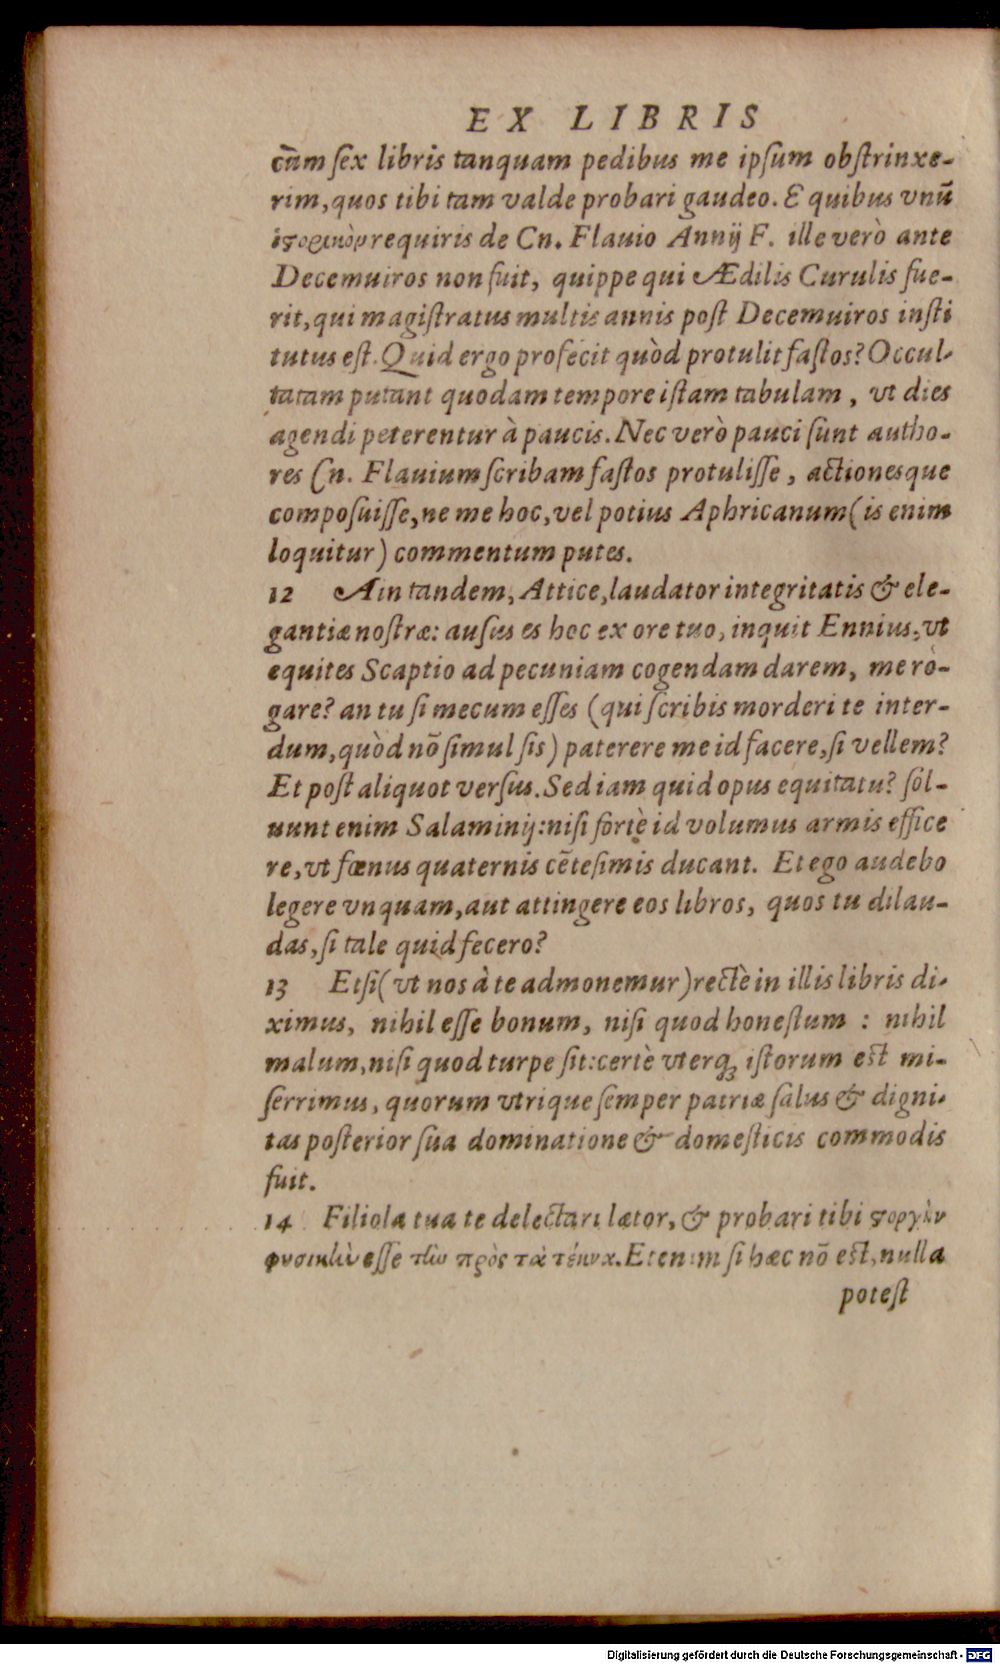 EX LIBRIS
cùm ſex libris tanquam pedibus me ipſum obſtrinxe-
rim, quos tibi tam valde probari gaudeo. E quibus vnũ
ἱϛορικὸν requiris de Cn. Flauio Annij F. ille verò ante
Decemuiros non fuit, quippe qui Ædilis Curulis fue-
rit, qui magiſtratus multis annis poſt Decemuiros inſti
tutus eſt. Quid ergo profecit quòd protulit faſtos? Occul-
tatam putant quodam tempore iſtam tabulam, vt dies
agendi peterentur à paucis. Nec verò pauci ſunt autho-
res Cn. Flauium ſcribam faſtos protuliſſe, actionesque
compoſuiſſe, ne me hoc, vel potius Aphricanum (is enim
loquitur) commentum putes.
12 Ain tandem, Attice, laudator integritatis & ele-
gantiæ noſtræ: auſus es hoc ex ore tuo, inquit Ennius, vt
equites Scaptio ad pecuniam cogendam darem, me ro-
gare? an tu ſi mecum eſſes (qui ſcribis morderi te inter-
dum, quòd nõ ſimul ſis) paterere me id facere, ſi vellem?
Et poſt aliquot verſus. Sed iam quid opus equitatu? ſol-
uunt enim Salaminij: niſi fortè id volumus armis effice
re, vt fœnus quaternis cẽteſimis ducant. Et ego audebo
legere vnquam, aut attingere eos libros, quos tu dilau-
das, ſi tale quid fecero?
13 Etſi (vt nos à te admonemur) rectè in illis libris di-
ximus, nihil eſſe bonum, niſi quod honeſtum : nihil
malum, niſi quod turpe ſit: certè vterq; iſtorum est mi-
ſerrimus, quorum vtrique ſemper patriæ ſalus & digni-
tas poſterior ſua dominatione & domeſticis commodis
fuit.
14 Filiola tua te delectari lætor, & probari tibi ϛοργὴν
φυσικὴν eſſe τὴν πρὸς τὰ τέκνα. Etenim ſi hæc nõ est, nulla
poteſt
Digitalisierung gefördert durch die Deutsche Forschungsgemeinschaft - DFG